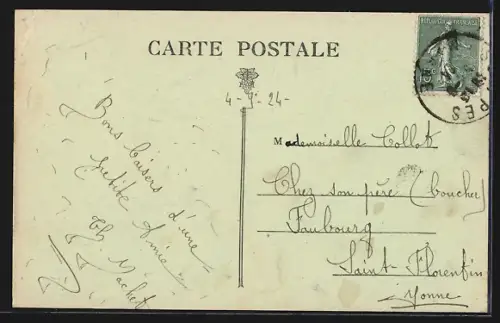 CARTE POSTALE
4-9-24-
Bons baisers
d'une
petite Amie
Th. Machet
Mademoiselle Collot
Chez son père (boucher)
Faubourg
Saint-Florentin
Yonne